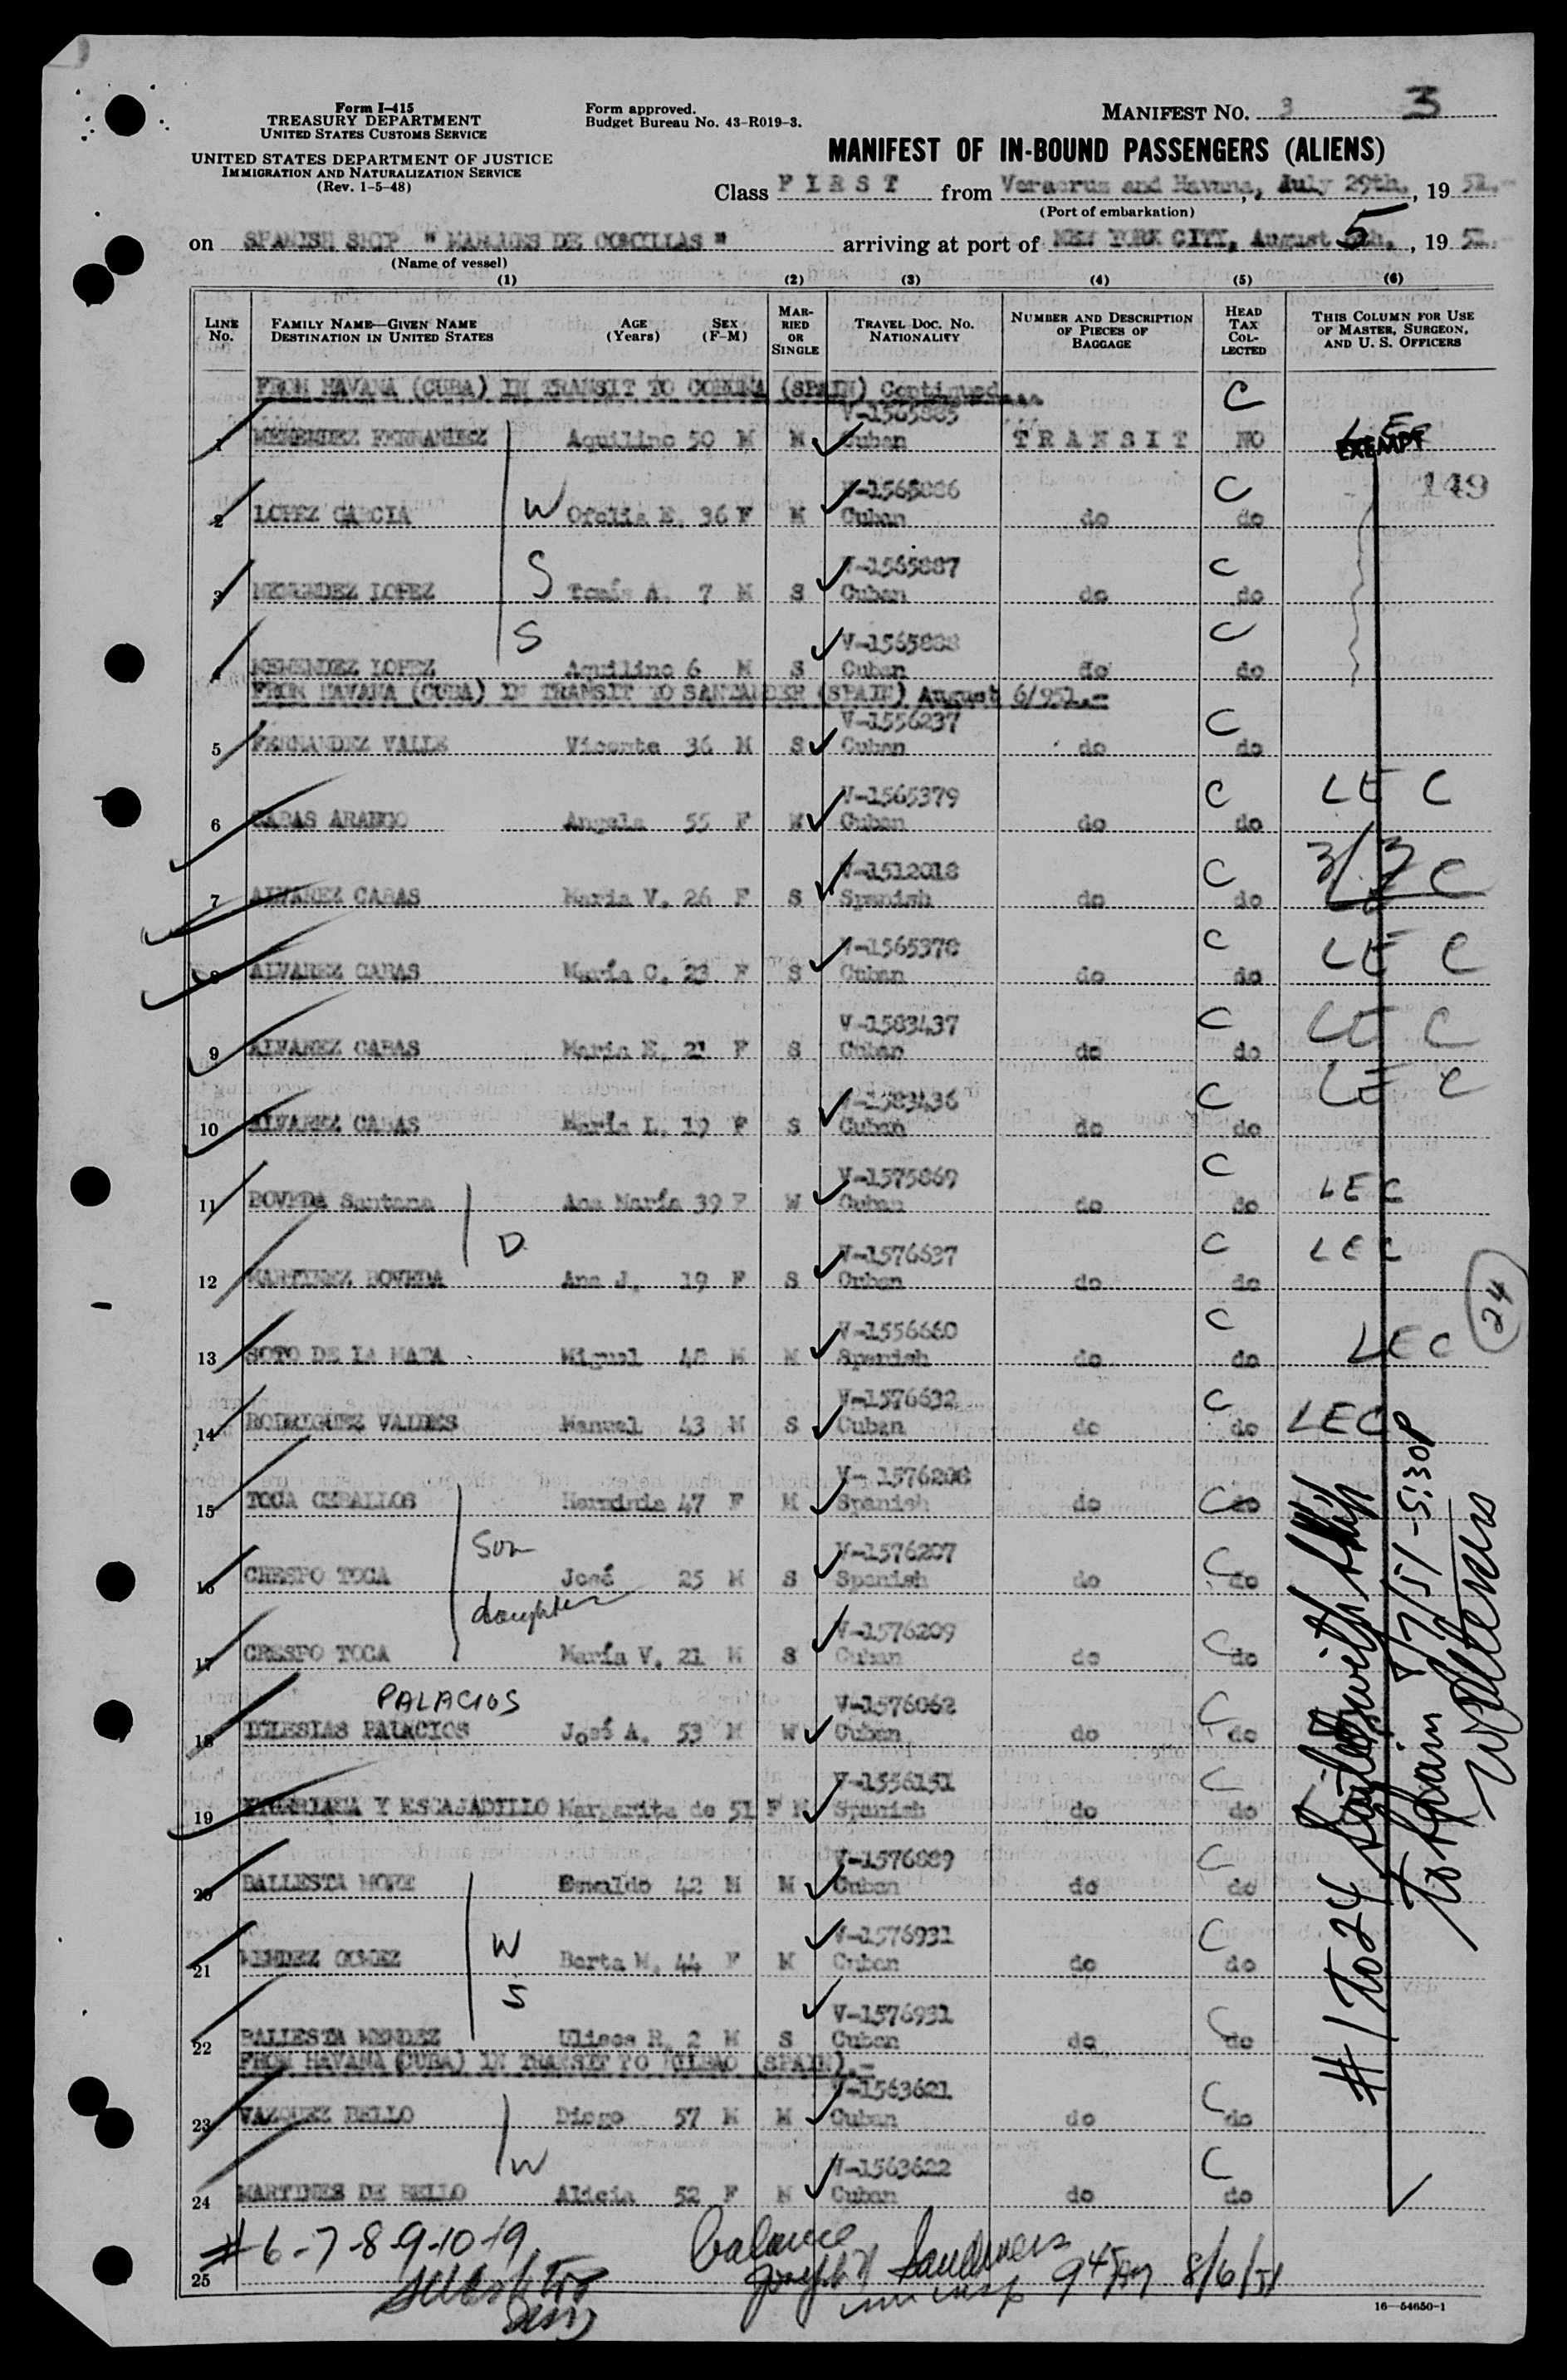 Form I-415
TREASURY DEPARTMENT
UNITED STATES CUSTOMS SERVICE
UNITED STATES DEPARTMENT OF JUSTICE
IMMIGRATION AND NATURALIZATION SERVICE
(Rev. 1-5-48)
Form approved.
Budget Bureau No. 43-R019-3.
MANIFEST No. 3 3
MANIFEST OF IN-BOUND PASSENGERS (ALIENS)
Class FIRST from Veracruz and Havana, July 29th, 1951.-
(Port of embarkation)
on SPANISH SHIP "MARQUES DE COMILLAS" arriving at port of NEW YORK CITY, August 5 th., 1951.
(Name of vessel)
(1) (2) (3) (4) (5) (6)
LINE No. FAMILY NAME—GIVEN NAME DESTINATION IN UNITED STATES AGE (Years) SEX (F-M) MARRIED OR SINGLE TRAVEL DOC. No. NATIONALITY NUMBER AND DESCRIPTION OF PIECES OF BAGGAGE HEAD TAX COLLECTED THIS COLUMN FOR USE OF MASTER, SURGEON, AND U. S. OFFICERS
FROM HAVANA (CUBA) IN TRANSIT TO CORUNA (SPAIN) Continued... C
V-1565885
1 MENENDEZ FERNANDEZ Aquilino 50 M M Cuban TRANSIT NO EXEMPT
V-1565886 C 149
2 LOPEZ GARCIA W Ofelia E. 36 F M Cuban do do
V-1565887 C
3 MENENDEZ LOPEZ S Tomás A. 7 M S Cuban do do
S V-1565888 C
4 MENENDEZ LOPEZ Aquilino 6 M S Cuban do do
FROM HAVANA (CUBA) IN TRANSIT TO SANTANDER (SPAIN) August 6/951.-
V-1556237 C
5 FERNANDEZ VALLE Vicente 36 M S Cuban do do
V-1565379 C LEC
6 CABAS ARANGO Angela 55 F W Cuban do do
V-1512018 C 3/3 C
7 ALVAREZ CABAS Maria V. 26 F S Spanish do do
V-1565378 C LEC
8 ALVAREZ CABAS María C. 23 F S Cuban do do
V-1583437 C LEC
9 ALVAREZ CABAS Maria E. 21 F S Cuban do do
V-1583436 C LEC
10 ALVAREZ CABAS María L. 19 F S Cuban do do
V-1575869 C LEC
11 BOVEDA Santana Ana María 39 F W Cuban do do
D V-1576637 C LEC
12 MARTINEZ BOVEDA Ana J. 19 F S Cuban do do
V-1556660 C 24
13 SOTO DE LA MATA Miguel 48 M M Spanish do do LEC
V-1576632 C
14 RODRIGUEZ VALDES Manuel 43 M S Cuban do do LEC
V-1576208
15 TOCA CEBALLOS Herminia 47 F M Spanish do C do
Son V-1576207 C
16 CRESPO TOCA José 25 M S Spanish do do
daughter V-1576209 C
17 CRESPO TOCA María V. 21 M S Cuban do do
PALACIOS V-1576062 C
18 IGLESIAS PALACIOS José A. 53 M W Cuban do do
V-1556151 C
19 Y ESCAJADILLO Margarita de 51 F M Spanish do do
V-1576889 C
20 BALLESTA MORE Oswaldo 42 M M Cuban do do
W V-1576931 C
21 MENDEZ GOMEZ Berta M. 44 F M Cuban do do
S V-1576931 C
22 BALLESTA MENDEZ Ulises R. 2 M S Cuban do do
FROM HAVANA (CUBA) IN TRANSIT TO BILBAO (SPAIN).-
V-1563621 C
23 VAZQUEZ BELLO Diego 57 M M Cuban do do
W V-1563622 C
24 MARTINES DE BELLO Alicia 52 F M Cuban do do
#1 To 24 Sailed with Ship
to Spain 8/7/51 - 5:30P
#6-7-8-9-10-19
25
balance
Joseph Saunders
imm insp 9 45 AM 8/6/51
16—54650-1